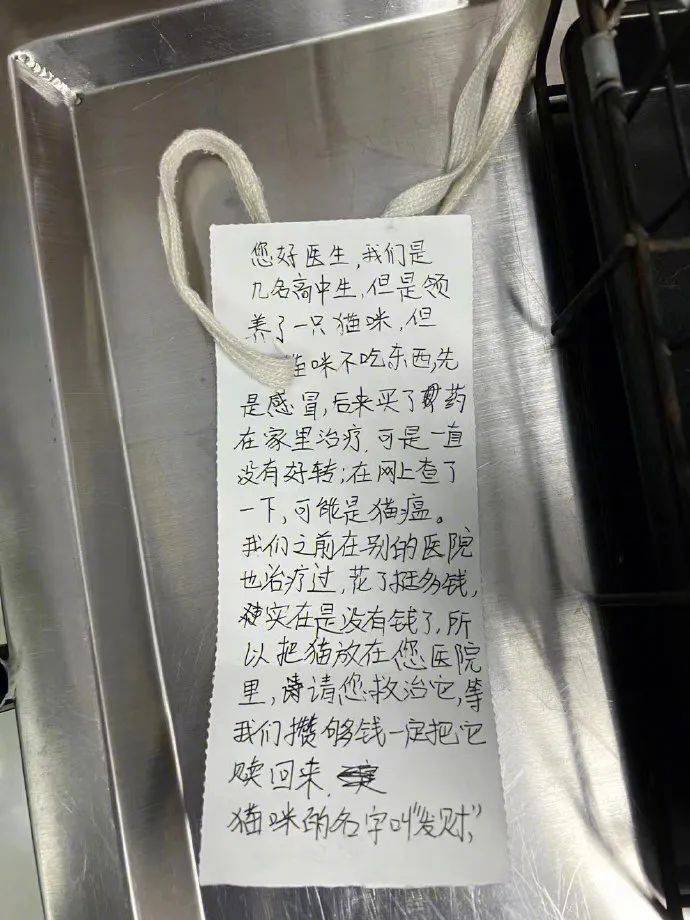 您好医生,我们是
几名高中生,但是领
养了一只猫咪,但
猫咪不吃东西,先
是感冒,后来买了药
在家里治疗,可是一直
没有好转;在网上查了
一下,可能是猫瘟。
我们之前在别的医院
也治疗过,花了挺多钱,
实在是没有钱了,所
以把猫放在您医院
里,请您救治它,等
我们攒够钱一定把它
赎回来,
猫咪的名字叫"发财,"